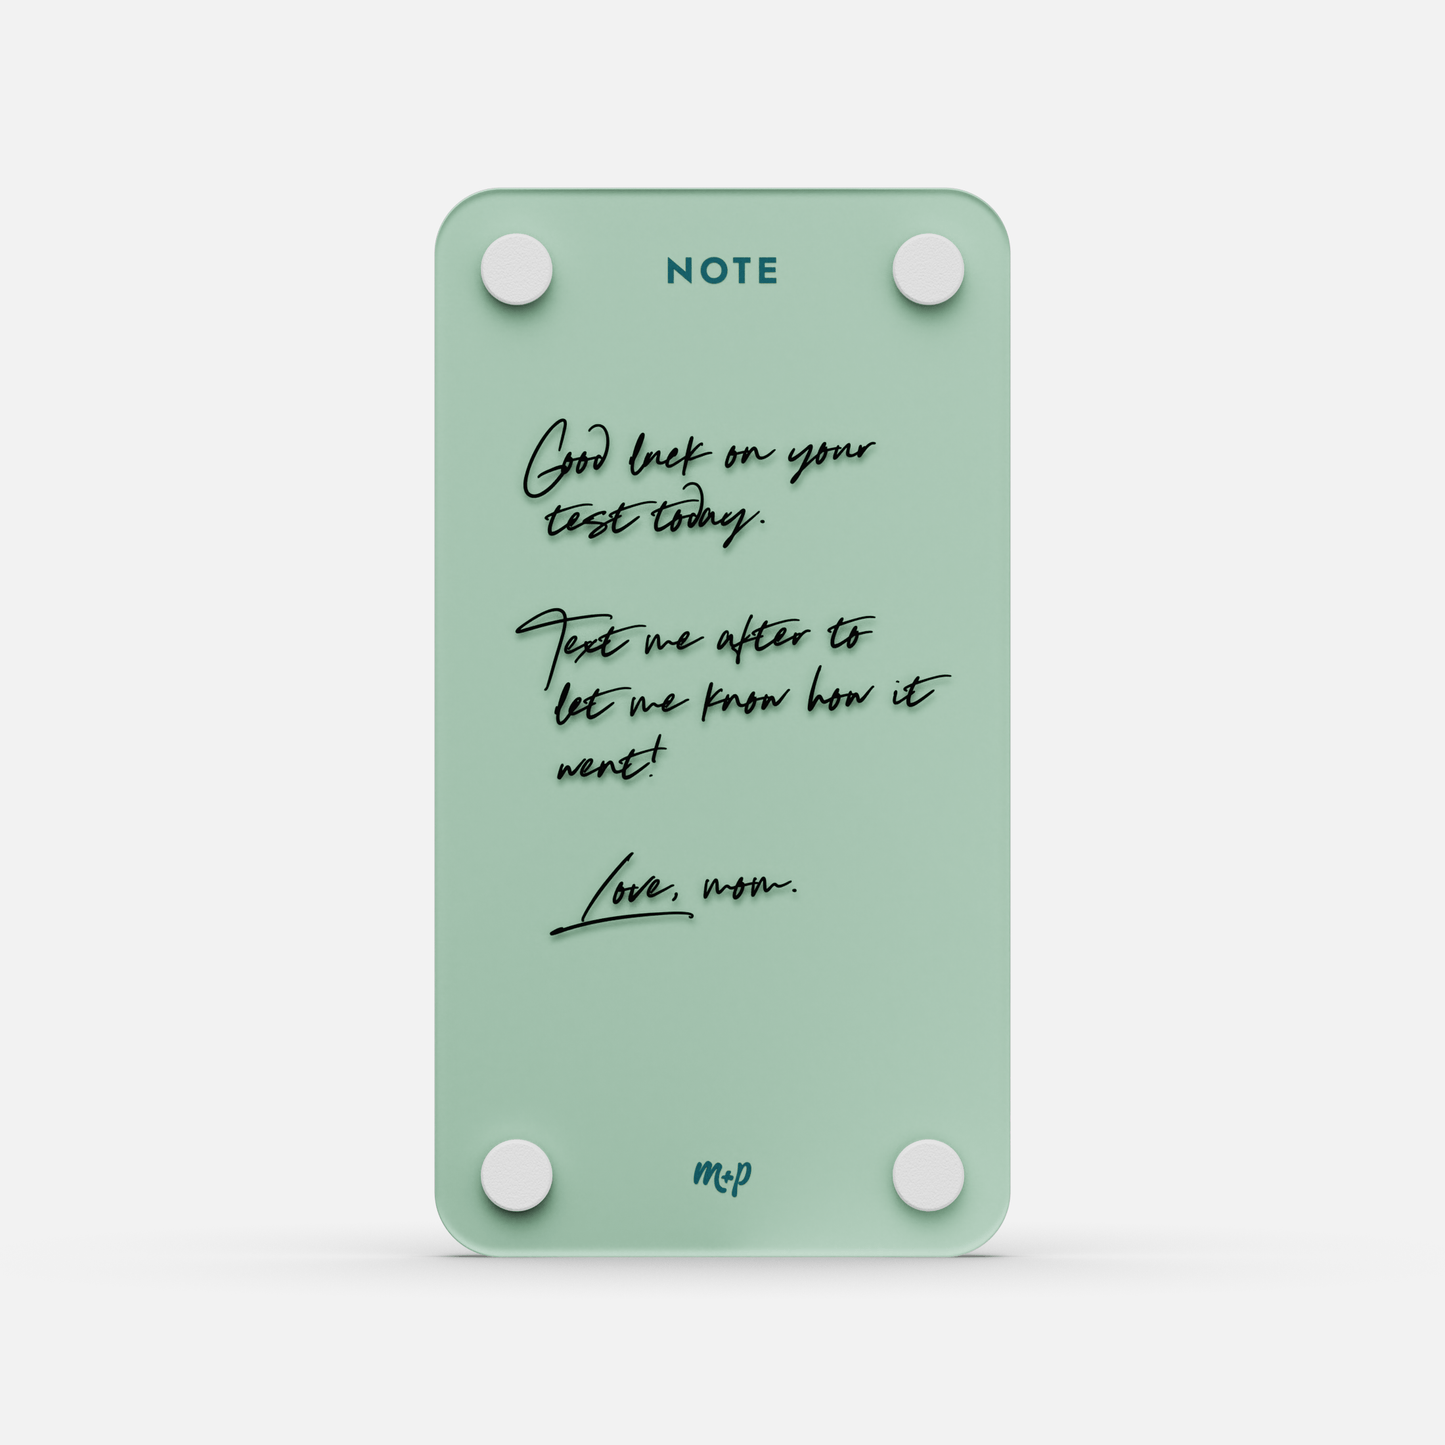 NOTE
Good luck on your
test today.
Text me after to
let me know how it
went!
Love, mom.
m+p